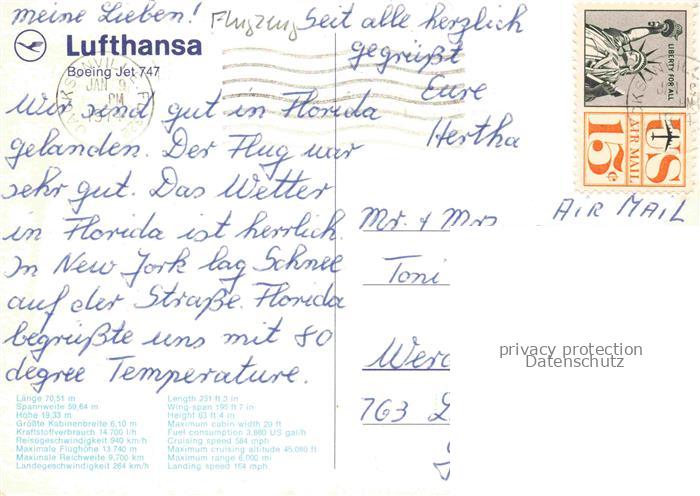 meine Lieben!
Flugzeug
Lufthansa
Boeing Jet 747
JAN 9
PM
Wir sind gut in Florida
gelanden. Der Flug war
sehr gut. Das Wetter
in Florida ist herrlich.
In New York lag Schnee
auf der Straße. Florida
begrüßte uns mit 80
degree Temperature.
Seit alle herzlich
gegrüßt
Eure
Hertha
LIBERTY FOR ALL
US
AIR MAIL
15¢
AIR MAIL
Mr. + Mrs
Toni
763
privacy protection
Datenschutz
Länge 70,51 m
Spannweite 59,64 m
Höhe 19,33 m
Größte Kabinenbreite 6,10 m
Kraftstoffverbrauch 14 700 l/h
Reisegeschwindigkeit 940 km/h
Maximale Flughöhe 13 740 m
Maximale Reichweite 9,700 km
Landegeschwindigkeit 264 km/h
Length 231 ft 3 in
Wing-span 195 ft 7 in
Height 63 ft 4 in
Maximum cabin width 20 ft
Fuel consumption 3,880 US gal/h
Cruising speed 584 mph
Maximum cruising altitude 45,080 ft
Maximum range 6,000 mi
Landing speed 164 mph